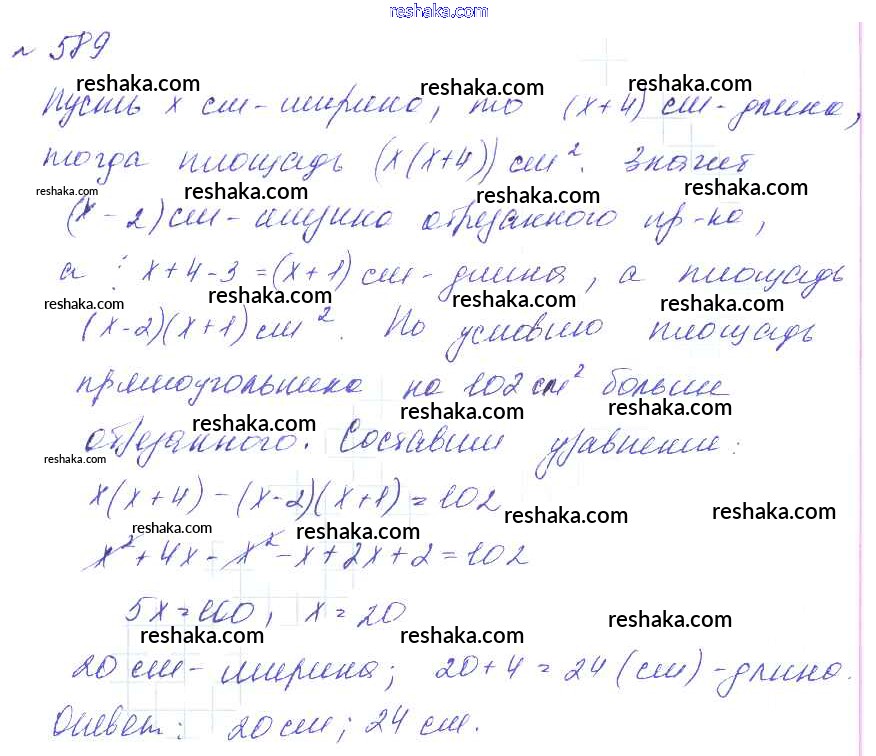 reshaka.com
№ 589
reshaka.com reshaka.com reshaka.com
Пусть x см-ширина, то (x+4) см-длина,
тогда площадь (x(x+4)) см². Значит
reshaka.com reshaka.com reshaka.com reshaka.com
(x-2) см- отрезанного пр-ка,
reshaka.com reshaka.com reshaka.com
а : x+4-3=(x+1) см-длина, а площадь
reshaka.com reshaka.com reshaka.com
(x-2)(x+1) см². По условию площадь
прямоугольника на 102 см² больше
reshaka.com reshaka.com reshaka.com
отрезанного. Составим уравнение:
reshaka.com
x(x+4)-(x-2)(x+1)=102
reshaka.com reshaka.com
reshaka.com reshaka.com
x²+4x-x²-x+2x+2=102
5x=100, x=20
reshaka.com reshaka.com reshaka.com
20 см-ширина; 20+4=24 (см)-длина.
Ответ: 20 см; 24 см.